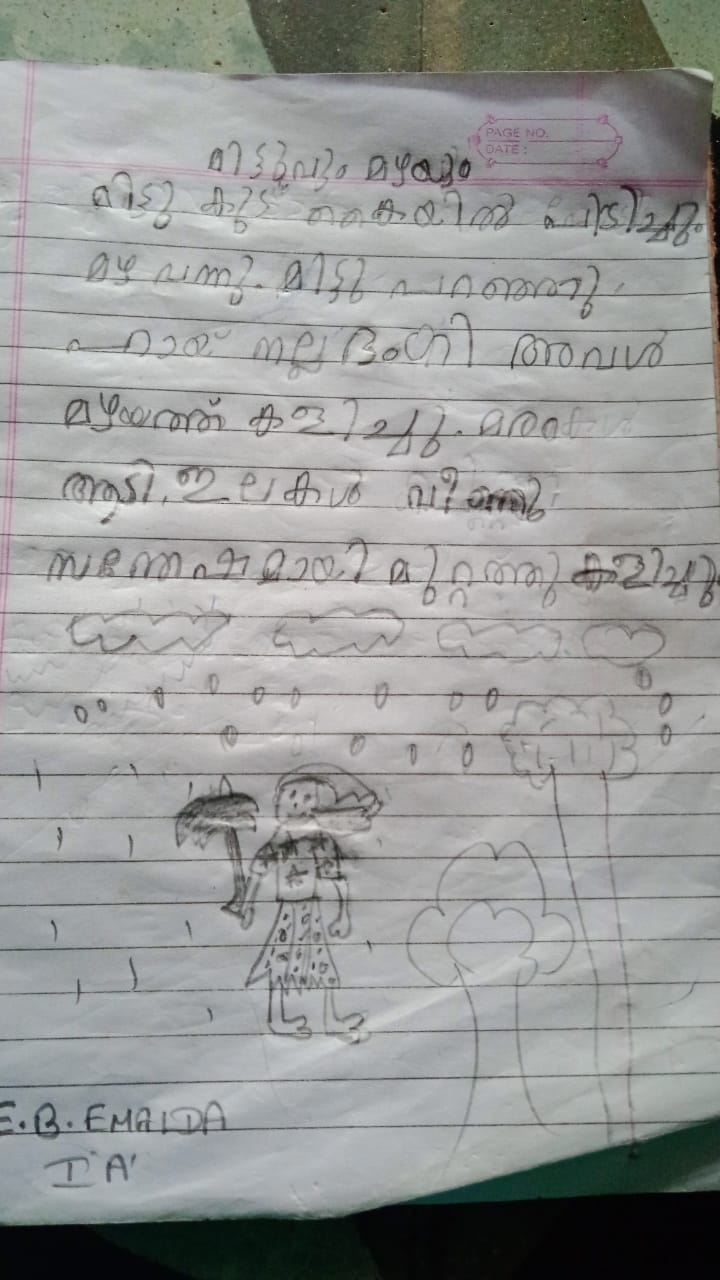 PAGE NO.
DATE :
മിട്ടുവും മഴയും
മിട്ടു കുട കൈയിൽ പിടിച്ചു.
മഴ വന്നു. മിട്ടു പറഞ്ഞു
ഹായ് നല്ല ഭംഗി അവൾ
മഴയത്ത് കളിച്ചു. മരങ്ങൾ
ആടി. ഇലകൾ വീണു
സന്തോഷമായി മുറ്റത്തു കളിച്ചു
E.B. EMALDA
I 'A'